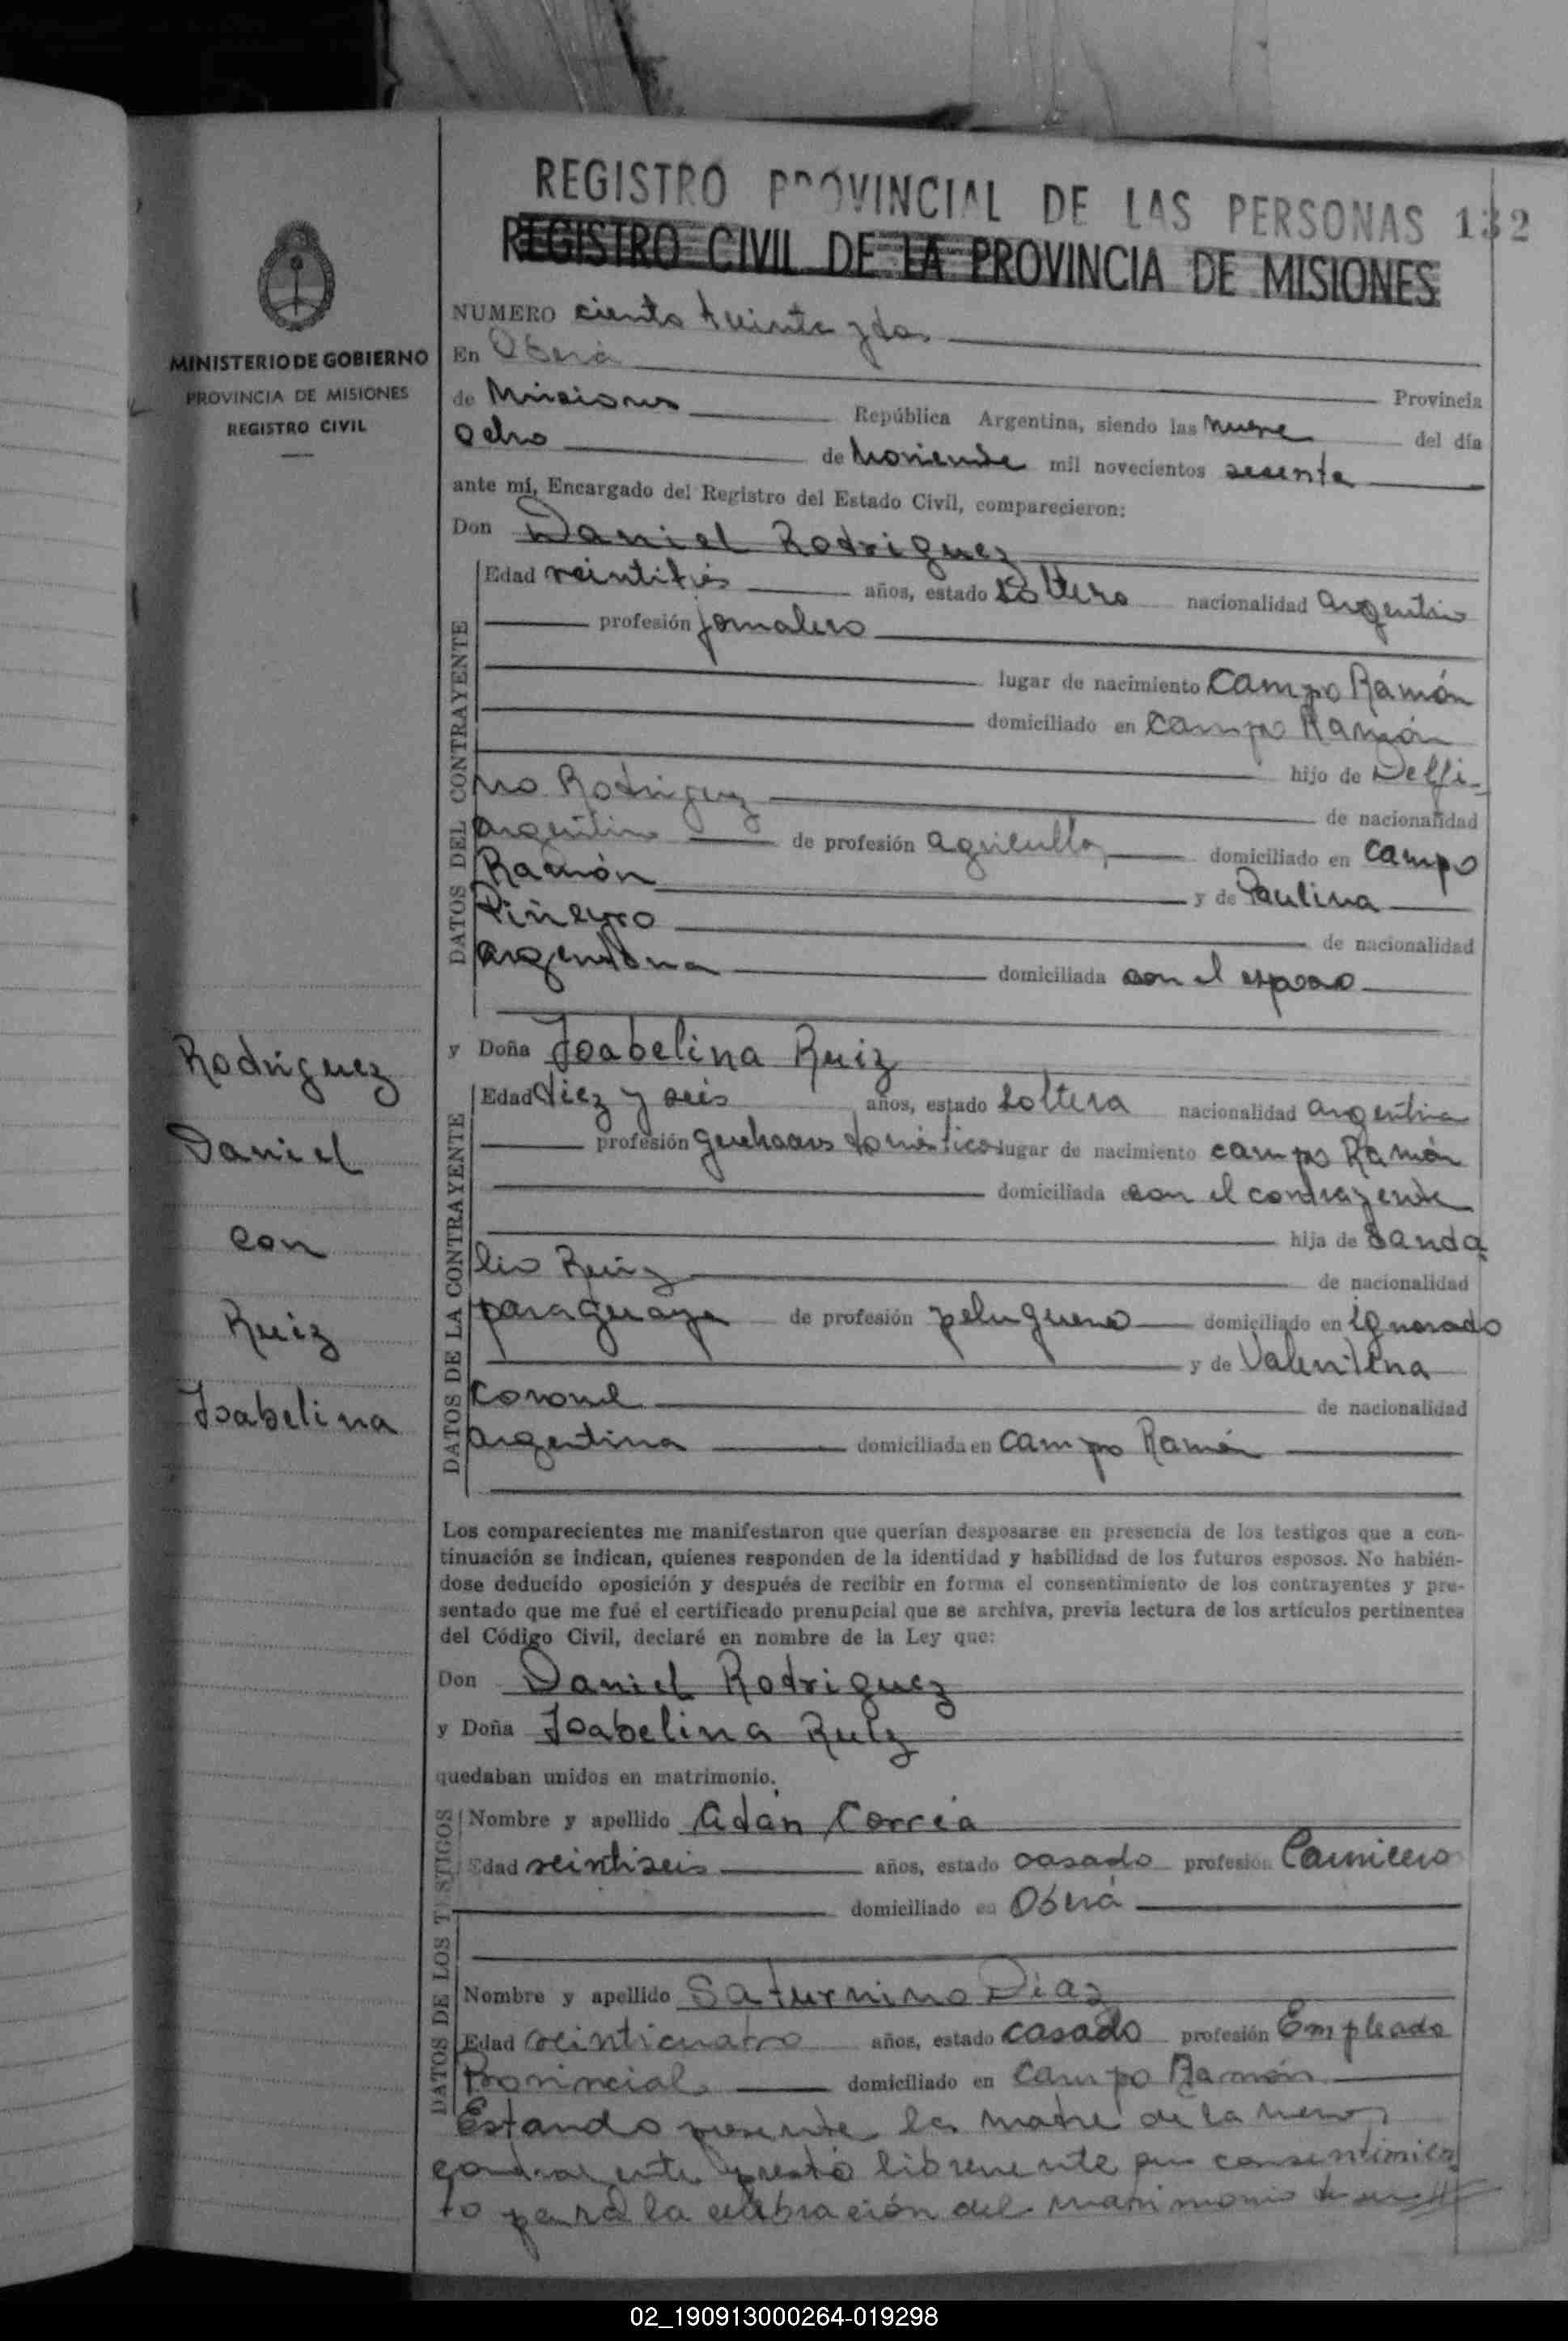 REGISTRO PROVINCIAL DE LAS PERSONAS 132
REGISTRO CIVIL DE LA PROVINCIA DE MISIONES
MINISTERIO DE GOBIERNO
PROVINCIA DE MISIONES
REGISTRO CIVIL
NUMERO ciento treinta y dos
En Oberá Provincia
de Misiones República Argentina, siendo las nueve del día
ocho de noviembre mil novecientos sesenta
ante mí, Encargado del Registro del Estado Civil, comparecieron:
Don Daniel Rodriguez
DATOS DEL CONTRAYENTE
Edad veintitrés años, estado soltero nacionalidad argentino
profesión jornalero
lugar de nacimiento Campo Ramón
domiciliado en Campo Ramón
hijo de Delfi-
no Rodriguez de nacionalidad
argentino de profesión agricultor domiciliado en Campo
Ramón y de Paulina
Piñeyro de nacionalidad
argentina domiciliada con el esposo
Rodriguez
Daniel
con
Ruiz
Isabelina
y Doña Isabelina Ruiz
DATOS DE LA CONTRAYENTE
Edad diez y seis años, estado soltera nacionalidad argentina
profesión quehaceres domésticos lugar de nacimiento campo Ramón
domiciliada con el contrayente
hija de Sanda
lio Ruiz de nacionalidad
paraguaya de profesión peluquero domiciliado en ignorado
y de Valentina
Coronel de nacionalidad
argentina domiciliada en campo Ramón
Los comparecientes me manifestaron que querían desposarse en presencia de los testigos que a con-
tinuación se indican, quienes responden de la identidad y habilidad de los futuros esposos. No habién-
dose deducido oposición y después de recibir en forma el consentimiento de los contrayentes y pre-
sentado que me fué el certificado prenupcial que se archiva, previa lectura de los artículos pertinentes
del Código Civil, declaré en nombre de la Ley que:
Don Daniel Rodriguez
y Doña Isabelina Ruiz
quedaban unidos en matrimonio.
DATOS DE LOS TESTIGOS
Nombre y apellido Adán Corrêa
Edad veintiseis años, estado casado profesión Carnicero
domiciliado en Oberá
Nombre y apellido Saturnino Diaz
Edad veinticuatro años, estado casado profesión Empleado
Provincial domiciliado en Campo Ramón
Estando presente la madre de la menor
contrayente prestó libremente su consentimien
to para la celebración del matrimonio de su
02_190913000264-019298